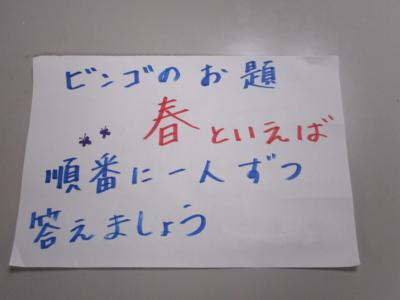 ビンゴのお題
春といえば
順番に一人ずつ
答えましょう